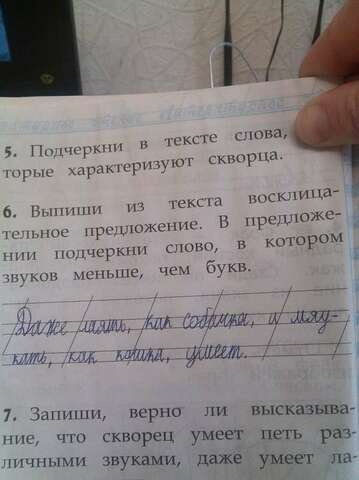 5. Подчеркни в тексте слова,
торые характеризуют скворца.
6. Выпиши из текста восклица-
тельное предложение. В предложе-
нии подчеркни слово, в котором
звуков меньше, чем букв.
Даже лаять, как собачка, и мяу-
кать, как кошка, умеет.
7. Запиши, верно ли высказыва-
ние, что скворец умеет петь раз-
личными звуками, даже умеет ла-